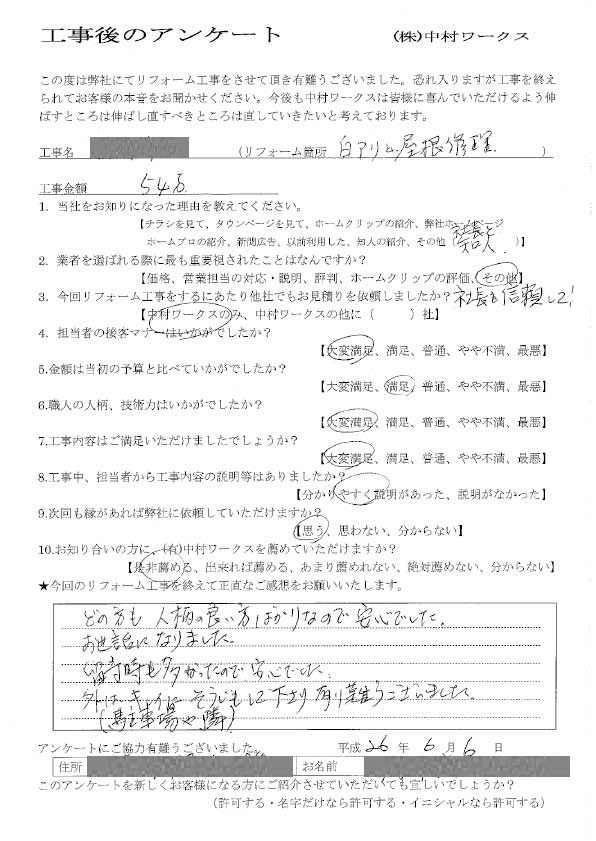 工事後のアンケート (株)中村ワークス
この度は弊社にてリフォーム工事をさせて頂き有難うございました。恐れ入りますが工事を終え
られてお客様の本音をお聞かせください。今後も中村ワークスは皆様に喜んでいただけるよう伸
ばすところは伸ばし直すべきところは直していきたいと考えております。
工事名 (リフォーム箇所 白アリと屋根修理 )
工事金額 54万
1. 当社をお知りになった理由を教えてください。
【チラシを見て、タウンページを見て、ホームクリップの紹介、弊社ホームページ
ホームプロの紹介、新聞広告、以前利用した、知人の紹介、その他（社長と知人 ）】
2. 業者を選ばれる際に最も重要視されたことはなんですか？
【価格、営業担当の対応・説明、評判、ホームクリップの評価、その他】
社長を信頼して!
3. 今回リフォーム工事をするにあたり他社でもお見積りを依頼しましたか？
【中村ワークスのみ、中村ワークスの他に（ ）社】
4. 担当者の接客マナーはいかがでしたか？
【大変満足、満足、普通、やや不満、最悪】
5.金額は当初の予算と比べていかがでしたか？
【大変満足、満足、普通、やや不満、最悪】
6.職人の人柄、技術力はいかがでしたか？
【大変満足、満足、普通、やや不満、最悪】
7.工事内容はご満足いただけましたでしょうか？
【大変満足、満足、普通、やや不満、最悪】
8.工事中、担当者から工事内容の説明等はありましたか？
【分かりやすく説明があった、説明がなかった】
9.次回も縁があれば弊社に依頼していただけますか？
【思う、思わない、分からない】
10.お知り合いの方に、(有)中村ワークスを薦めていただけますか？
【是非薦める、出来れば薦める、あまり薦めれない、絶対薦めない、分からない】
★今回のリフォーム工事を終えて正直なご感想をお願いいたします。
どの方も 人柄の良い方ばかりなので安心でした。
お世話になりました。
留守時も多かったので安心でした。
外はキレイにそうじもして下さり有り難うございました。
(駐車場や隣)
アンケートにご協力有難うございました。 平成 26 年 6 月 6 日
住所 お名前
このアンケートを新しくお客様になる方にご紹介させていただいても宜しいでしょうか？
（許可する・名字だけなら許可する・イニシャルなら許可する）